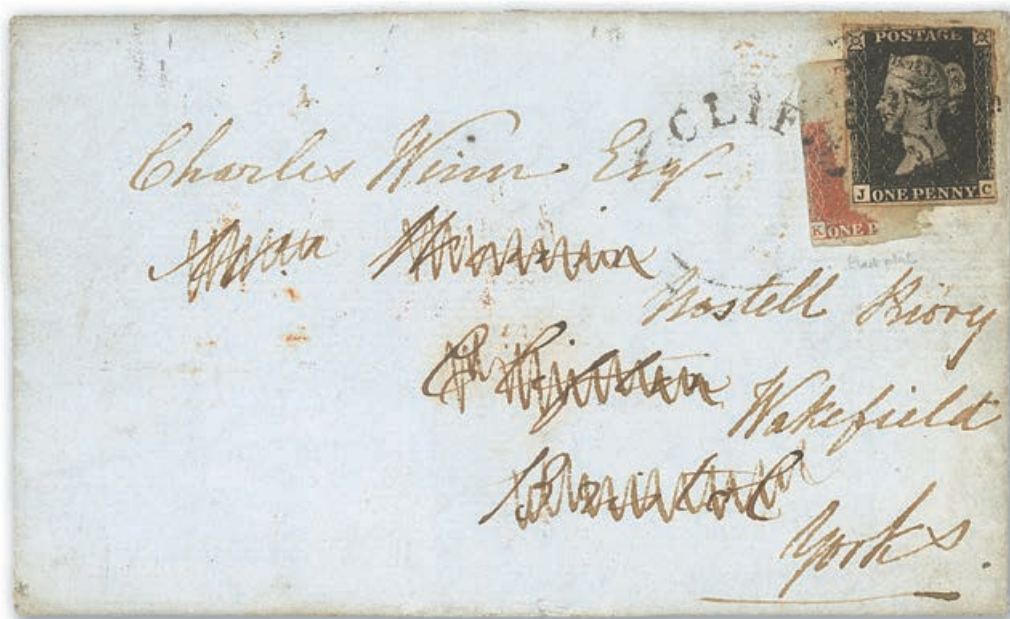 POSTAGE
CLIF
J ONE PENNY C
K ONE P
Charles Winn Esqr
Nostell Priory
Wakefield
Yorks.